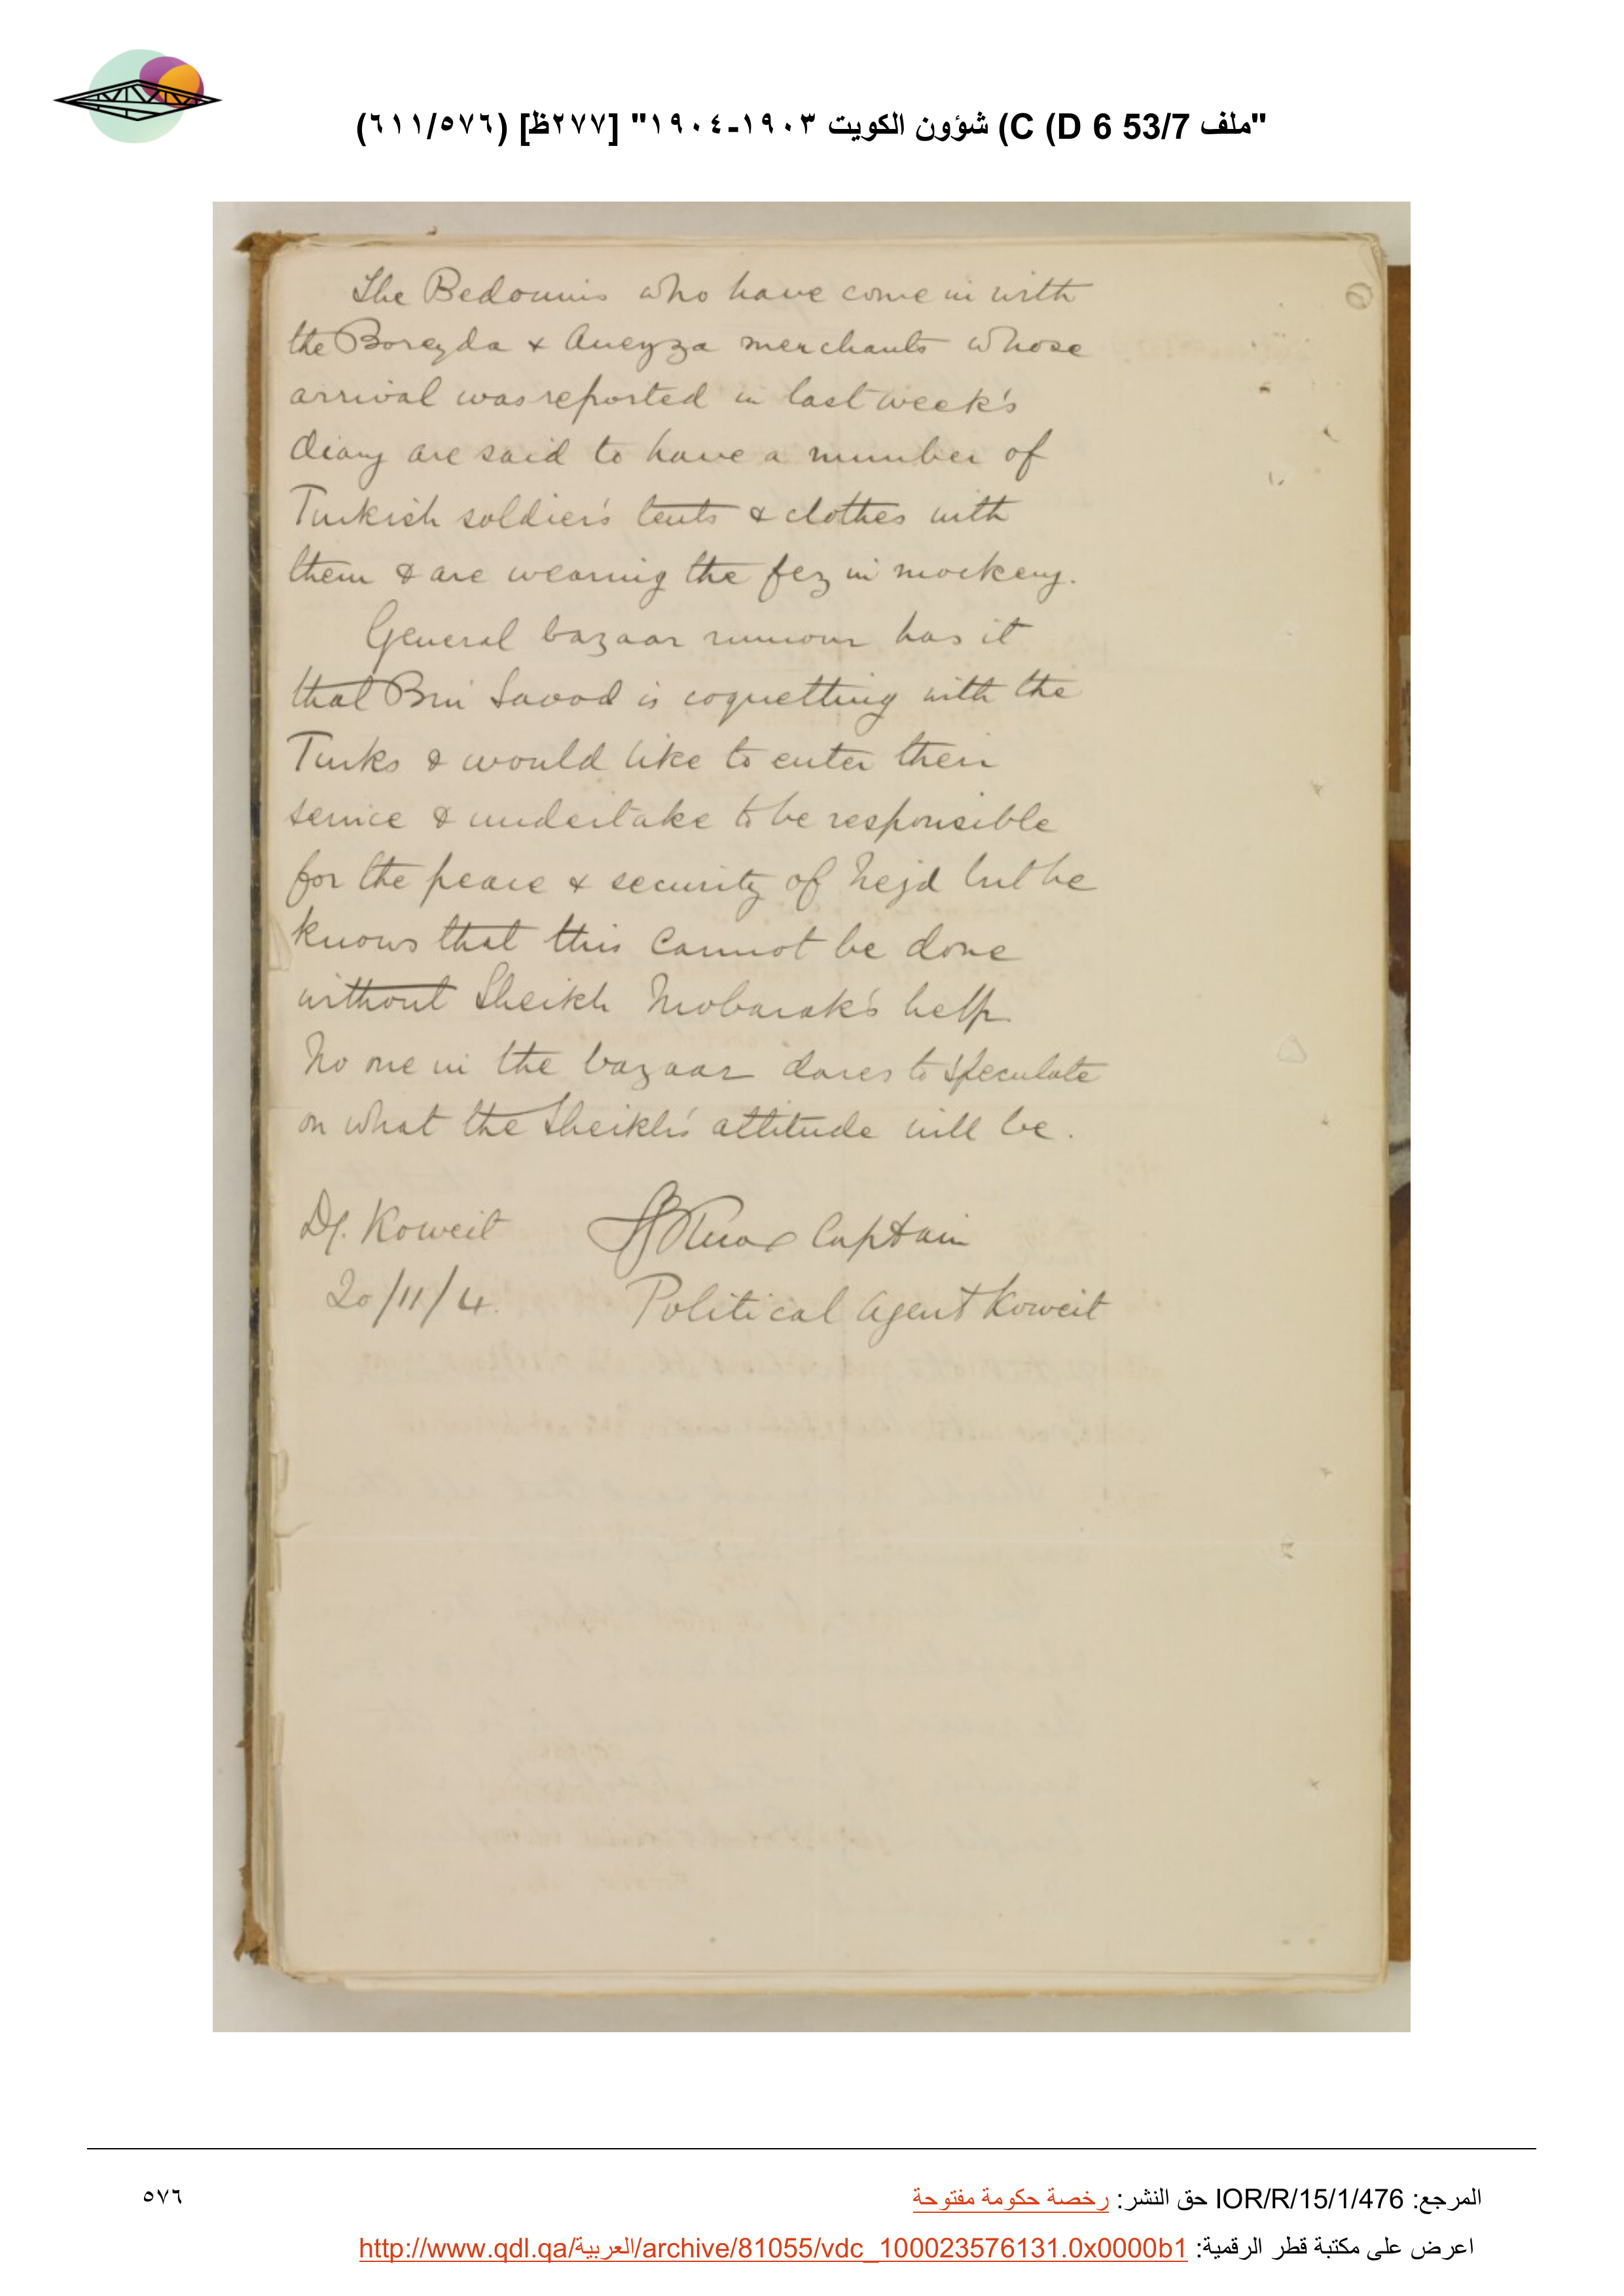 "ملف 53/7 C (D 6) شؤون الكويت ١٩٠٣-١٩٠٤" [٢٧٧ظ] (٥٧٦/٦١١)
The Bedouins who have come in with
the Boreyda & Aneyza merchants whose
arrival was reported in last week's
diary are said to have a number of
Turkish soldier's tents & clothes with
them & are wearing the fez in mockery.
General bazaar rumour has it
that Bin Saood is coquetting with the
Turks & would like to enter their
service & undertake to be responsible
for the peace & security of Nejd but he
knows that this cannot be done
without Sheikh Mobarak's help
No one in the bazaar dares to speculate
on what the Sheikh's attitude will be.
Df. Koweit Knox Captain
20/11/4. Political Agent Koweit
المرجع: IOR/R/15/1/476 حق النشر: رخصة حكومة مفتوحة
٥٧٦
اعرض على مكتبة قطر الرقمية: http://www.qdl.qa/العربية/archive/81055/vdc_100023576131.0x0000b1